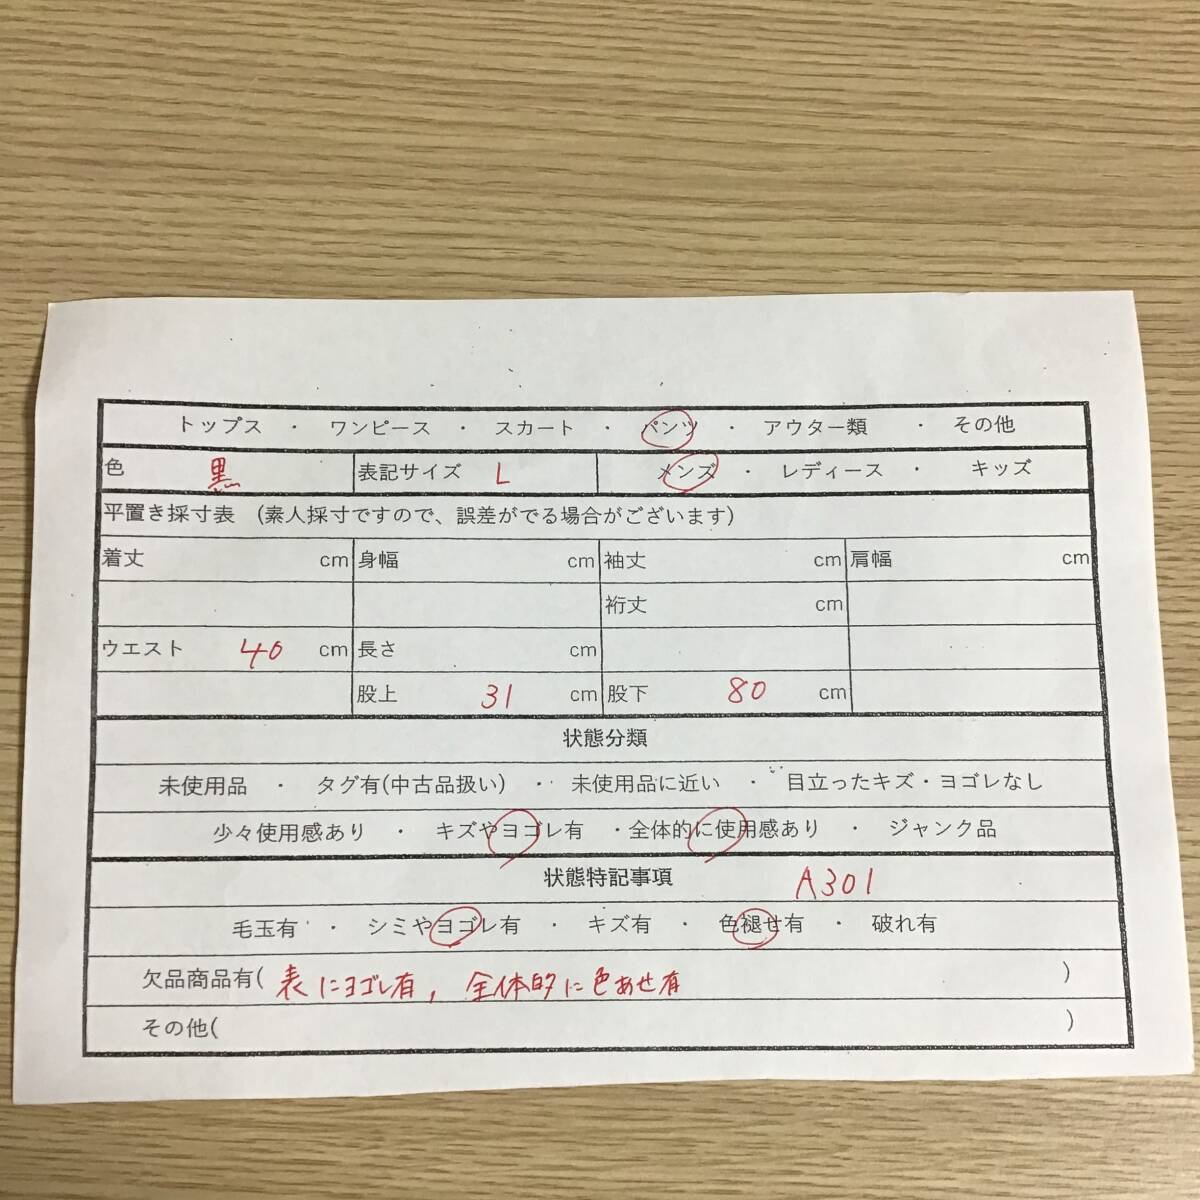 トップス ・ ワンピース ・ スカート ・ パンツ ・ アウター類 ・ その他
色 黒 表記サイズ L メンズ ・ レディース ・ キッズ
平置き採寸表 (素人採寸ですので、誤差がでる場合がございます)
着丈 cm 身幅 cm 袖丈 cm 肩幅 cm
裄丈 cm
ウエスト 40 cm 長さ cm
股上 31 cm 股下 80 cm
状態分類
未使用品 ・ タグ有(中古品扱い) ・ 未使用品に近い ・ 目立ったキズ・ヨゴレなし
少々使用感あり ・ キズやヨゴレ有 ・全体的に使用感あり ・ ジャンク品
状態特記事項 A301
毛玉有 ・ シミやヨゴレ有 ・ キズ有 ・ 色褪せ有 ・ 破れ有
欠品商品有( 表にヨゴレ有, 全体的に色あせ有 )
その他( )